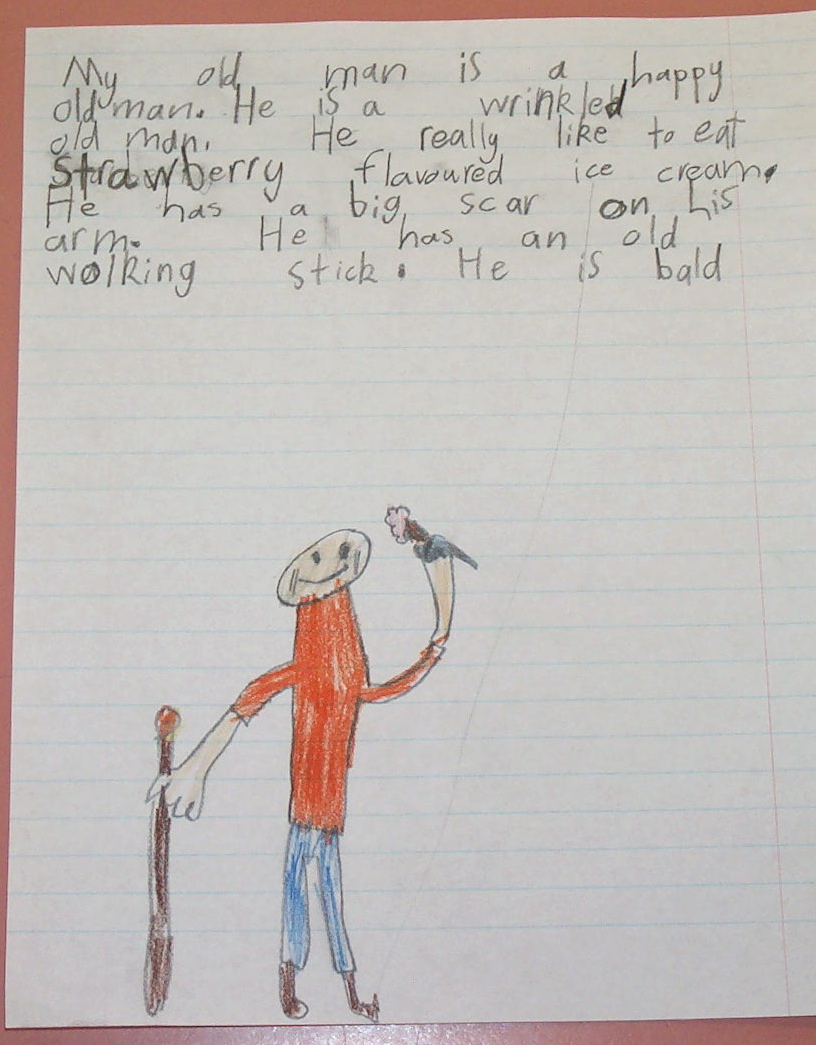 My old man is a happy
old man. He is a wrinkled
old man. He really like to eat
Strawberry flavoured ice cream.
He has a big scar on his
arm. He has an old
walking stick. He is bald